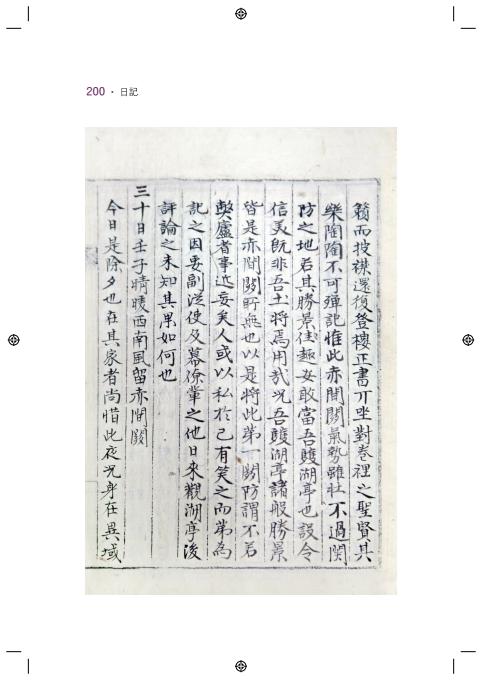 200 · 日記
籟而披襟還復登樓正書丌坐對卷裡之聖賢其
樂陶陶不可殫記惟此赤間關氣勢雖壯不過関
防之地若其勝景佳趣安敢當吾雙湖亭也設令
信美旣非吾土將焉用哉况吾雙湖亭諸般勝景
皆是赤間關所無也以是將此第一關防謂不若
獘廬者事近妄矣人或以私於己有笑之而第爲
記之因要副從使及幕僚軰之他日來觀湖亭後
評論之未知其果如何也
三十日壬子晴暖西南風留赤間關
今日是除夕也在其家者尚惜此夜况身在異域